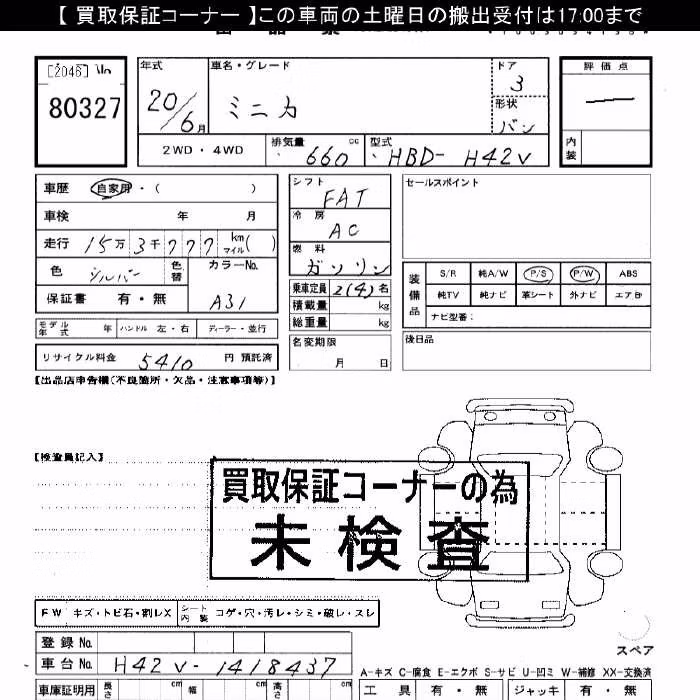 【 買取保証コーナー 】この車両の土曜日の搬出受付は17:00まで
[2046] No
80327
年式
20/6月
車名・グレード
ミニカ
ドア
3
形状
バン
評価点
内装
2WD・4WD
排気量
660 cc
型式
HBD-H42V
車歴 自家用・( )
車検 年 月
走行 15万3千777 km マイル( )
色 シルバー 色替 カラーNo.
A31
保証書 有・無
モデル年式 年 ハンドル 左・右 ディーラー・並行
リサイクル料金 5410 円 預託済
シフト
FAT
冷房
AC
燃料
ガソリン
乗車定員 2(4)名
積載量 kg
総重量 kg
名変期限
月 日
セールスポイント
装備品
S/R 純A/W P/S P/W ABS
純TV 純ナビ 革シート 外ナビ エアB
ナビ型番:
後日品
【出品店申告欄(不良箇所・欠品・注意事項等)】
【検査員記入】
買取保証コーナーの為
未検査
FW キズ・トビ石・割レX シート内装 コゲ・穴・汚レ・シミ・破レ・スレ
登録 No.
車台 No. H42V-1418437
車庫証明用 長さ cm 幅 cm 高さ cm
スペア
A-キズ C-腐食 E-エクボ S-サビ U-凹ミ W-補修 XX-交換済
工具 有・無 ジャッキ 有・無